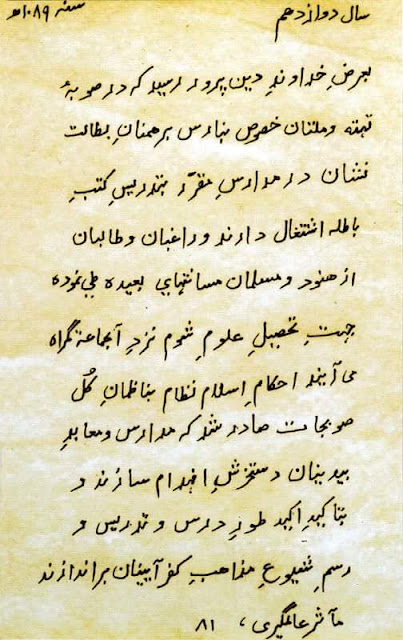 سال دوازدهم سنه ۱۰۸۹ھ
بعرض خداوندِ دین پرور رسید کہ در صوبۂ
تہتہ و ملتان خصوص بنارس برھمنانِ بطالت
نشان در مدارسِ مقرر بتدریسِ کتبِ
باطلہ اشتغال دارند و راغبان و طالبان
از ھنود و مسلمان مسافتہایِ بعیدہ طی نمودہ
جہتِ تحصیلِ علومِ شوم نزدِ آنجماعۃ گمراہ
می آیند احکامِ اسلام نظام بناظمانِ کُل
صوبجات صادر شد کہ مدارس و معابدِ
بیدینان دستخوشِ انہدام سازند و
بتاکیدِ اکید طورِ درس و تدریس و
رسمِ شیوعِ مذاھبِ کفر آیینان براندازند
مآثر عالمگیری، ۸۱